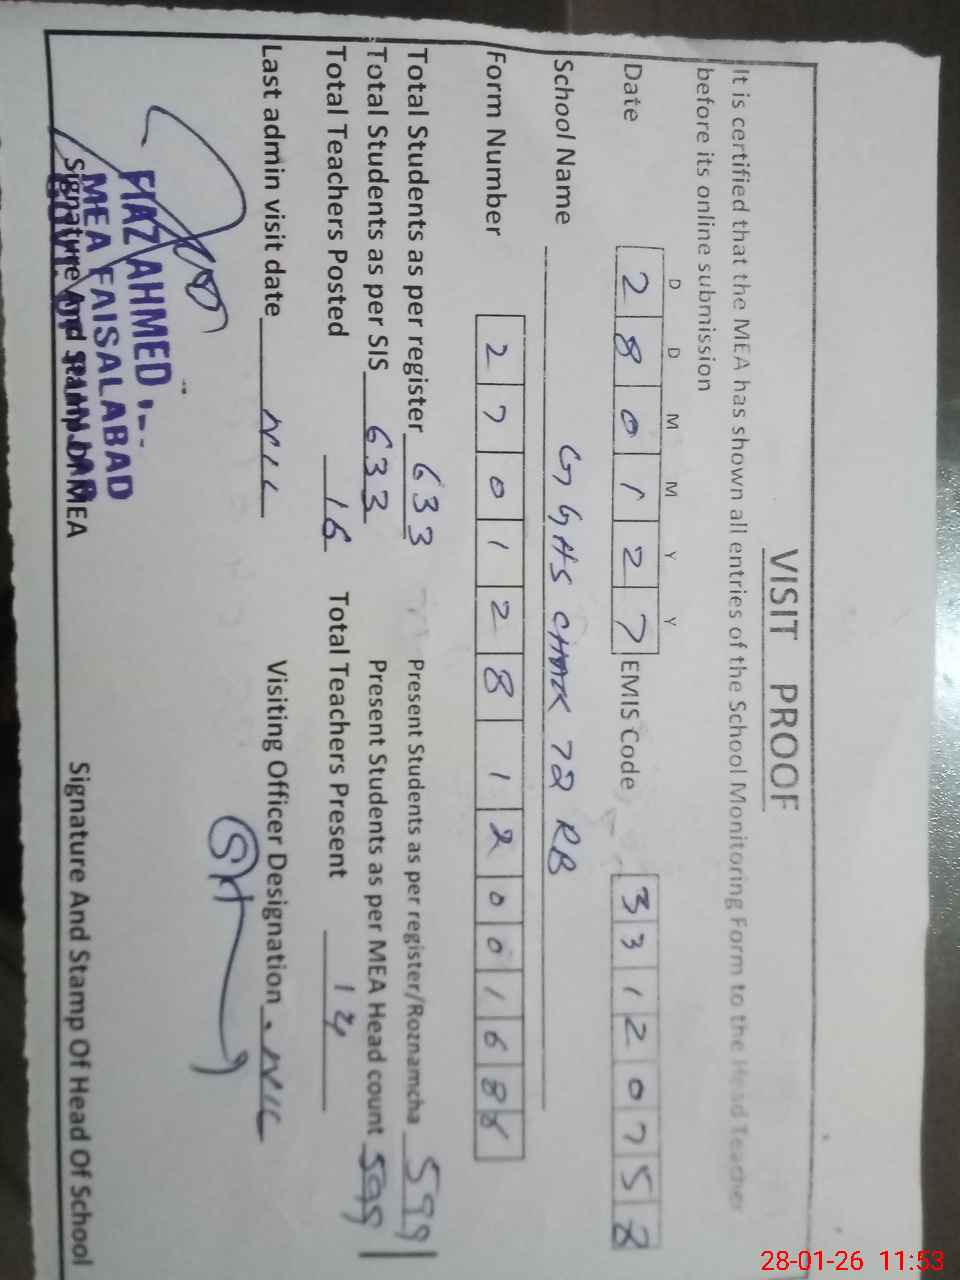 VISIT PROOF
It is certified that the MEA has shown all entries of the School Monitoring Form to the Head Teacher
before its online submission
D D M M Y Y
Date 2 8 0 1 2 7 EMIS Code 3 3 1 2 0 7 5 8
School Name GGHS CHAK 72 RB
Form Number 2 7 0 1 2 8 1 2 0 0 1 6 8 8
Total Students as per register 633 Present Students as per register/Roznamcha 599
Total Students as per SIS 633 Present Students as per MEA Head count 599
Total Teachers Posted 16 Total Teachers Present 14
Last admin visit date NIL Visiting Officer Designation NIL
FIAZ AHMED
MEA FAISALABAD
Signature And Stamp Of MEA Signature And Stamp Of Head Of School
28-01-26 11:53